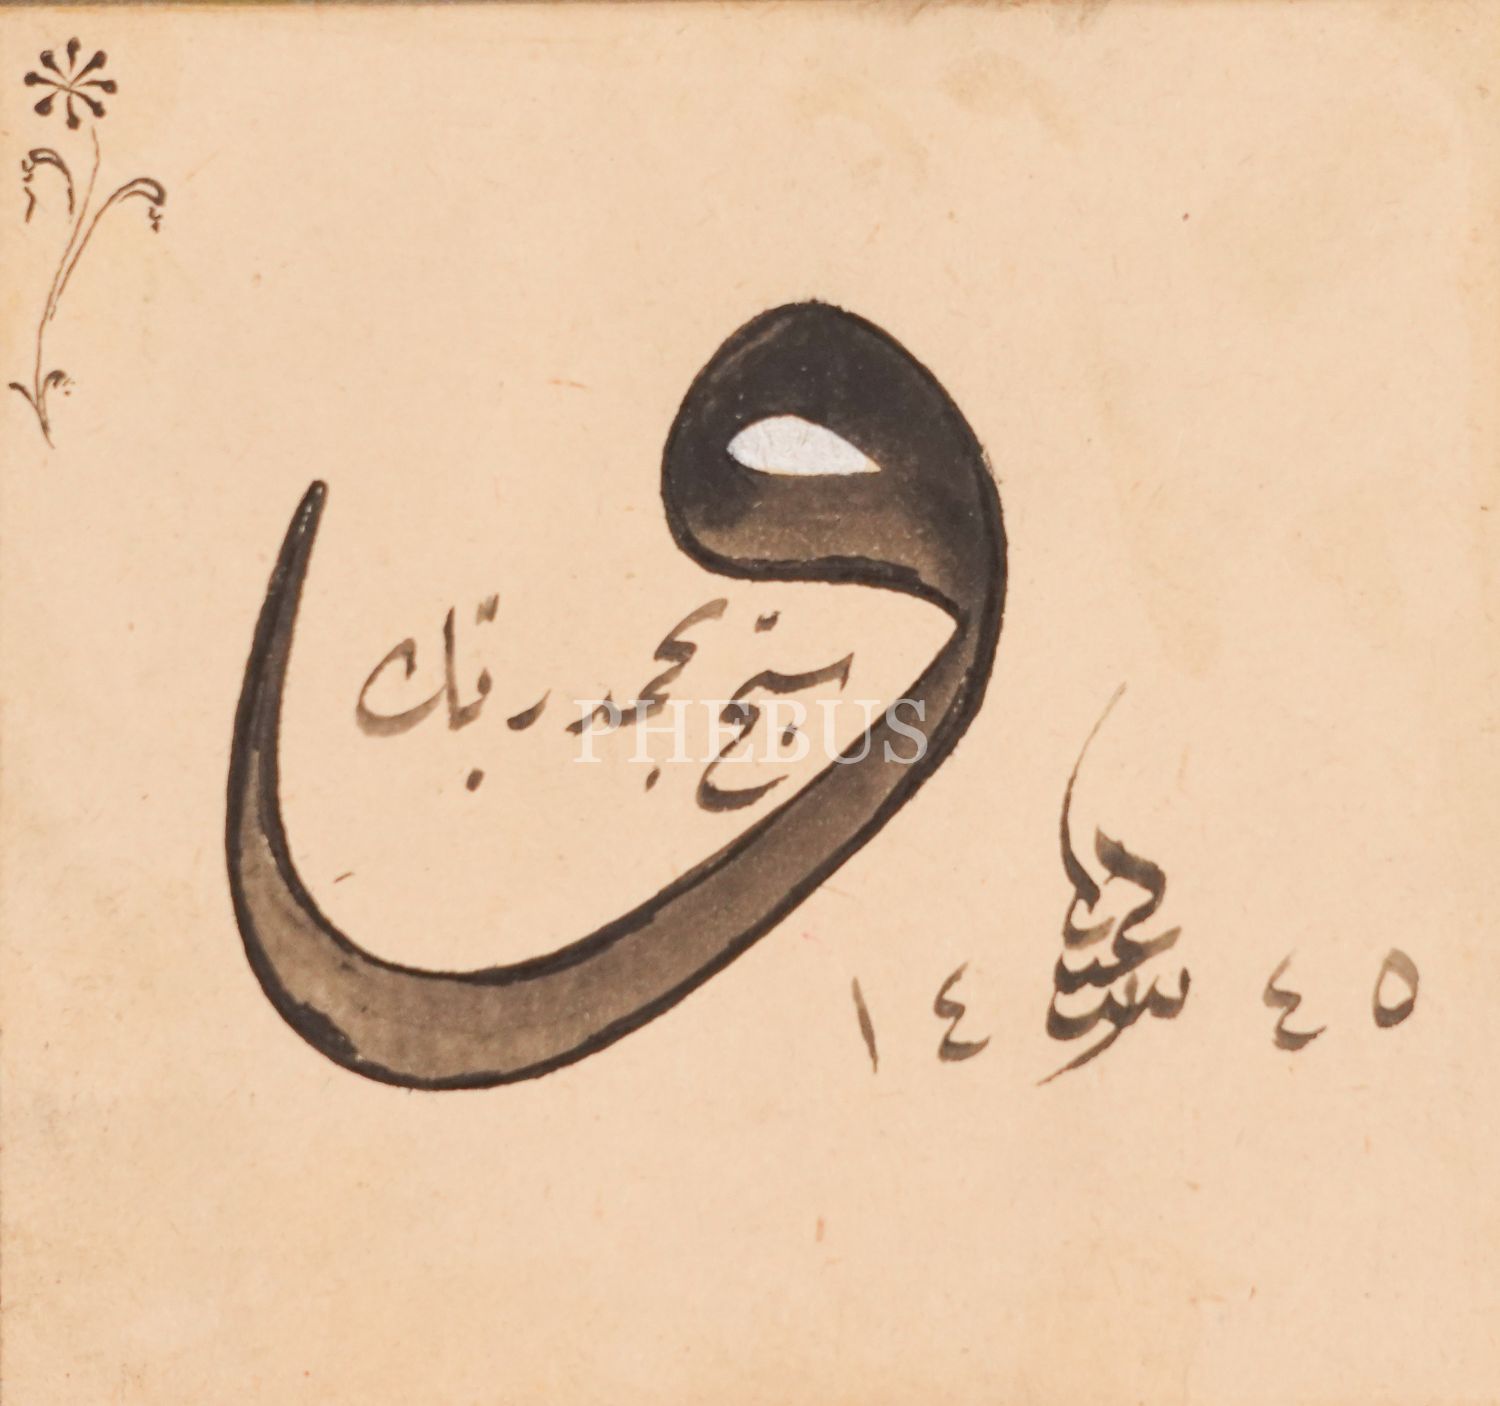 و
سبح بحمد ربك
PHEBUS
١٤٤٥